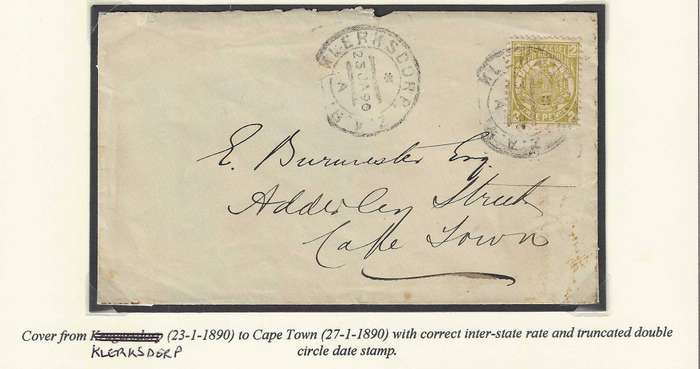 KLERKSDORP
23 JA 90
A
Z.A.R.
E. Burmester Esq
Adderley Street
Cape Town
Cover from (23-1-1890) to Cape Town (27-1-1890) with correct inter-state rate and truncated double
KLERKSDERP circle date stamp.